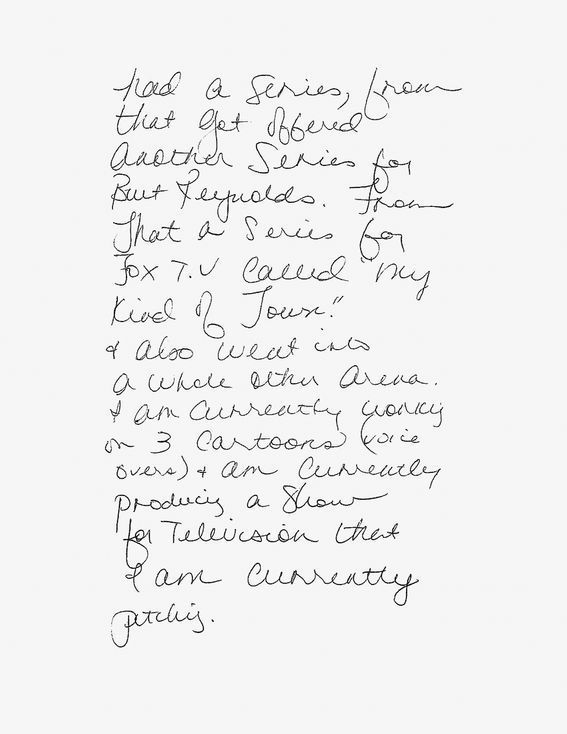 had a Series, from
that got offered
Another Series for
Burt Reynolds. From
That a Series for
Fox T.V Called "My
Kind of Town."
& Also went into
a whole other arena.
I am Currently working
on 3 Cartoons (voice
overs) & am Currently
producing a Show
for Television that
I am Currently
pitching.